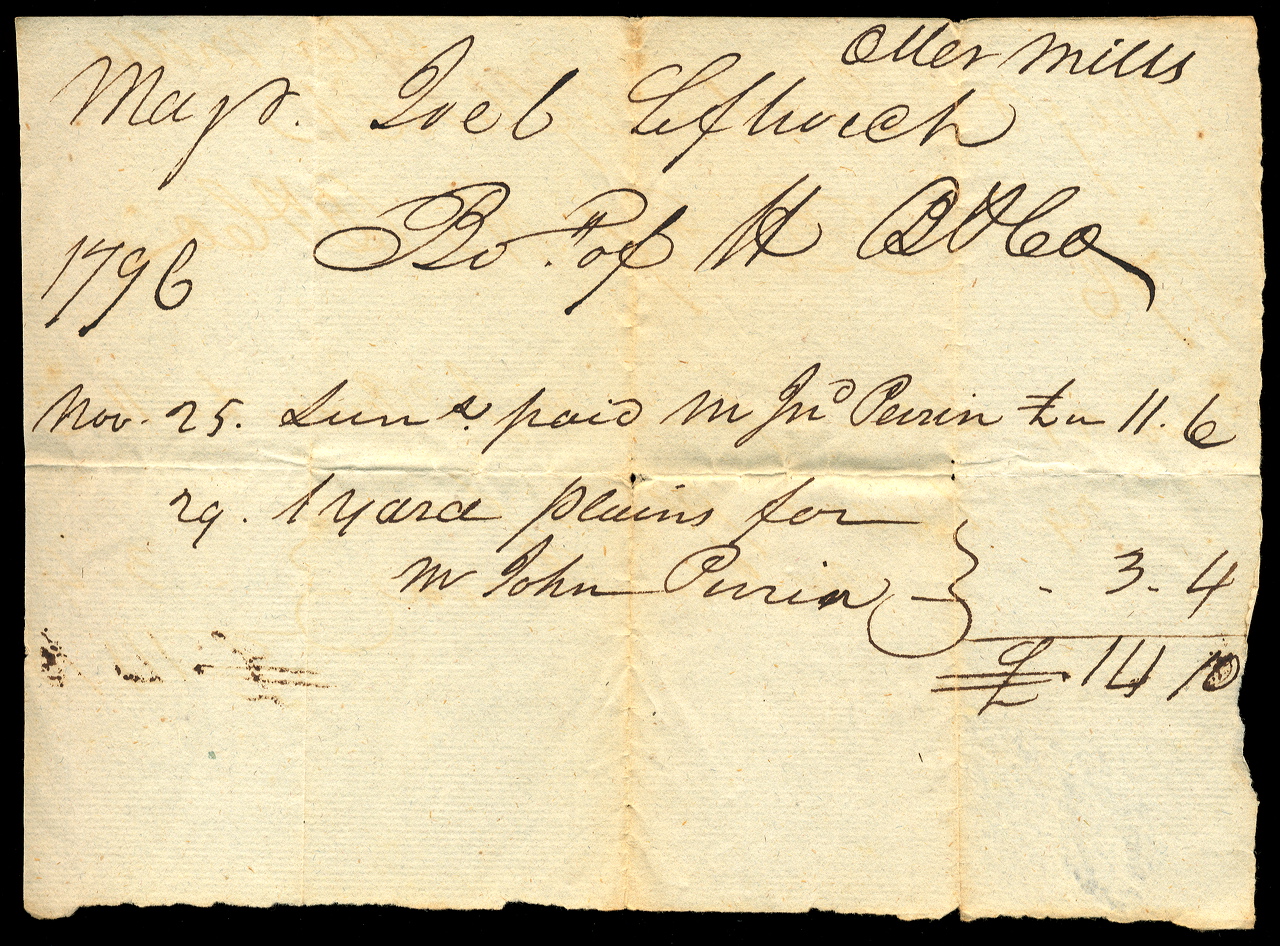 Otter Mills
Majr. Joel Leftwich
Bo.t of H B & Co
1796
Nov. 25. Sund.s paid Mr Jno Perrin £ " 11. 6
29. 1 Yard plains for
Mr John Perrin } - 3 - 4
£ 14 10